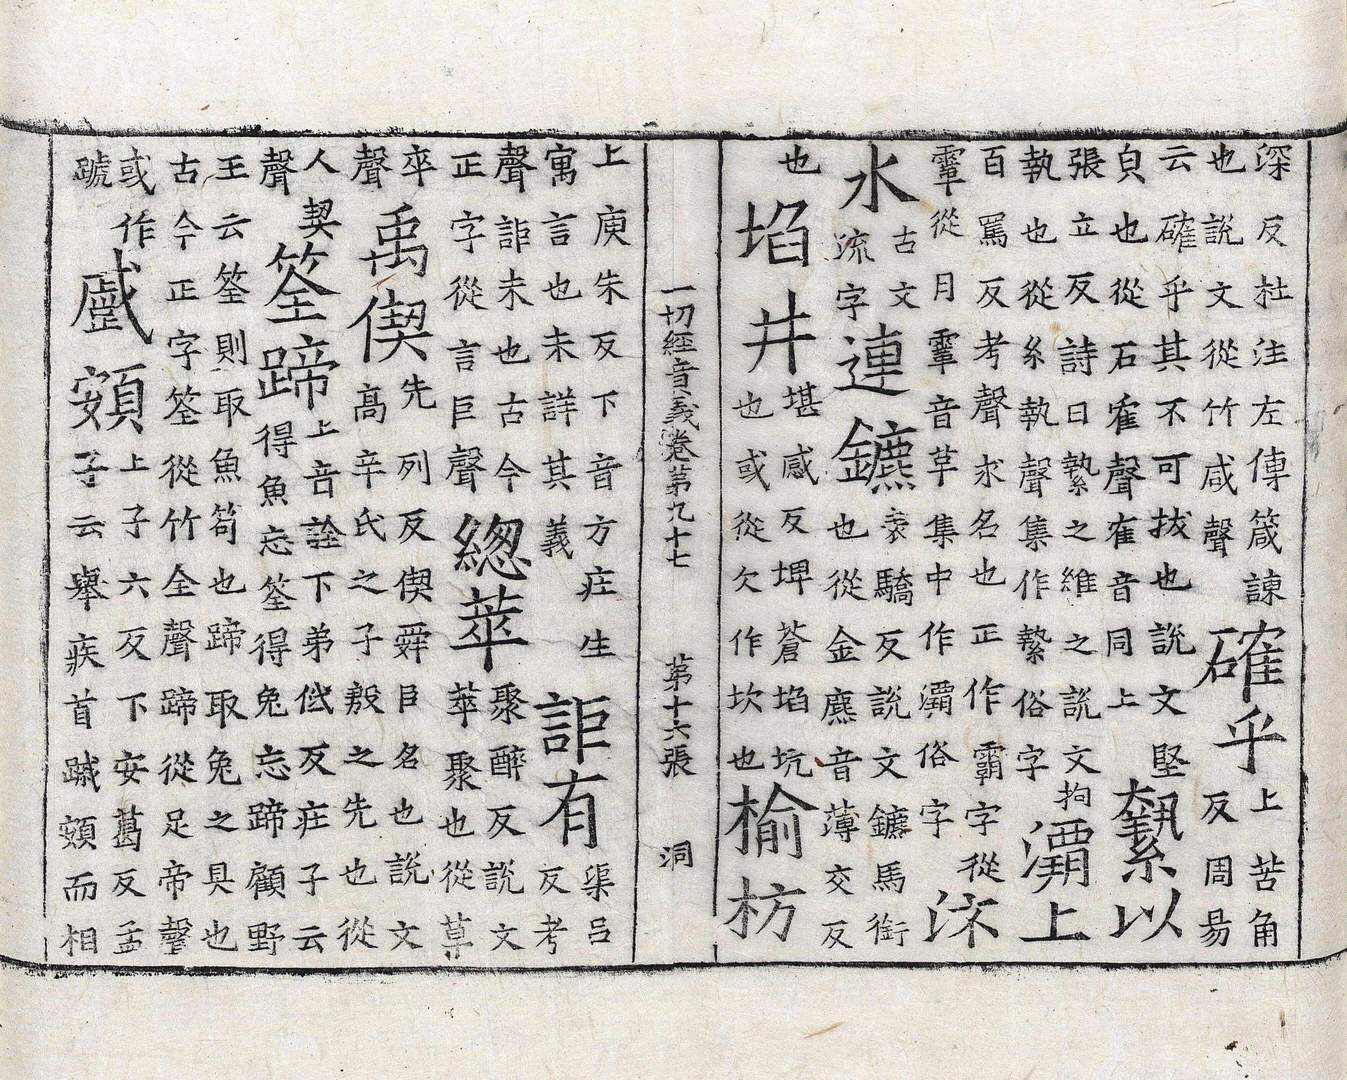 深反杜注左傳箴諫
也說文從竹咸聲
確乎
上苦角
反周易
云確乎其不可拔也說文堅
皃也從石隺聲隺音同上
縶以
張立反詩曰縶之維之說文拘
執也從糸執聲集作縶俗字
灞上
百罵反考聲求名也正作霸字從
䨣從月䨣音草集中作灞俗字
㳅
水
古文
流字
連鑣
表驕反說文鑣馬銜
也從金麃音薄交反
也
埳井
堪感反埤蒼埳坑
也或從欠作坎也
榆枋
一切經音義卷第九十七 第十六張 洞
上庾朱反下音方莊生
寓言也未詳其義
詎有
渠呂
反考
聲詎未也古今
正字從言巨聲
總萃
聚醉反說文
萃聚也從草
卒
聲
禹偰
先列反偰舜臣名也說文
高辛氏之子殷之先也從
人契
聲
筌蹄
上音詮下弟低反莊子云
得魚忘筌得兔忘蹄顧野
王云筌則取魚笱也蹄取兔之具也
古今正字筌從竹全聲蹄從足帝聲
或作
蹏
蹙頞
上子六反下安葛反孟
子云舉疾首蹙頞而相